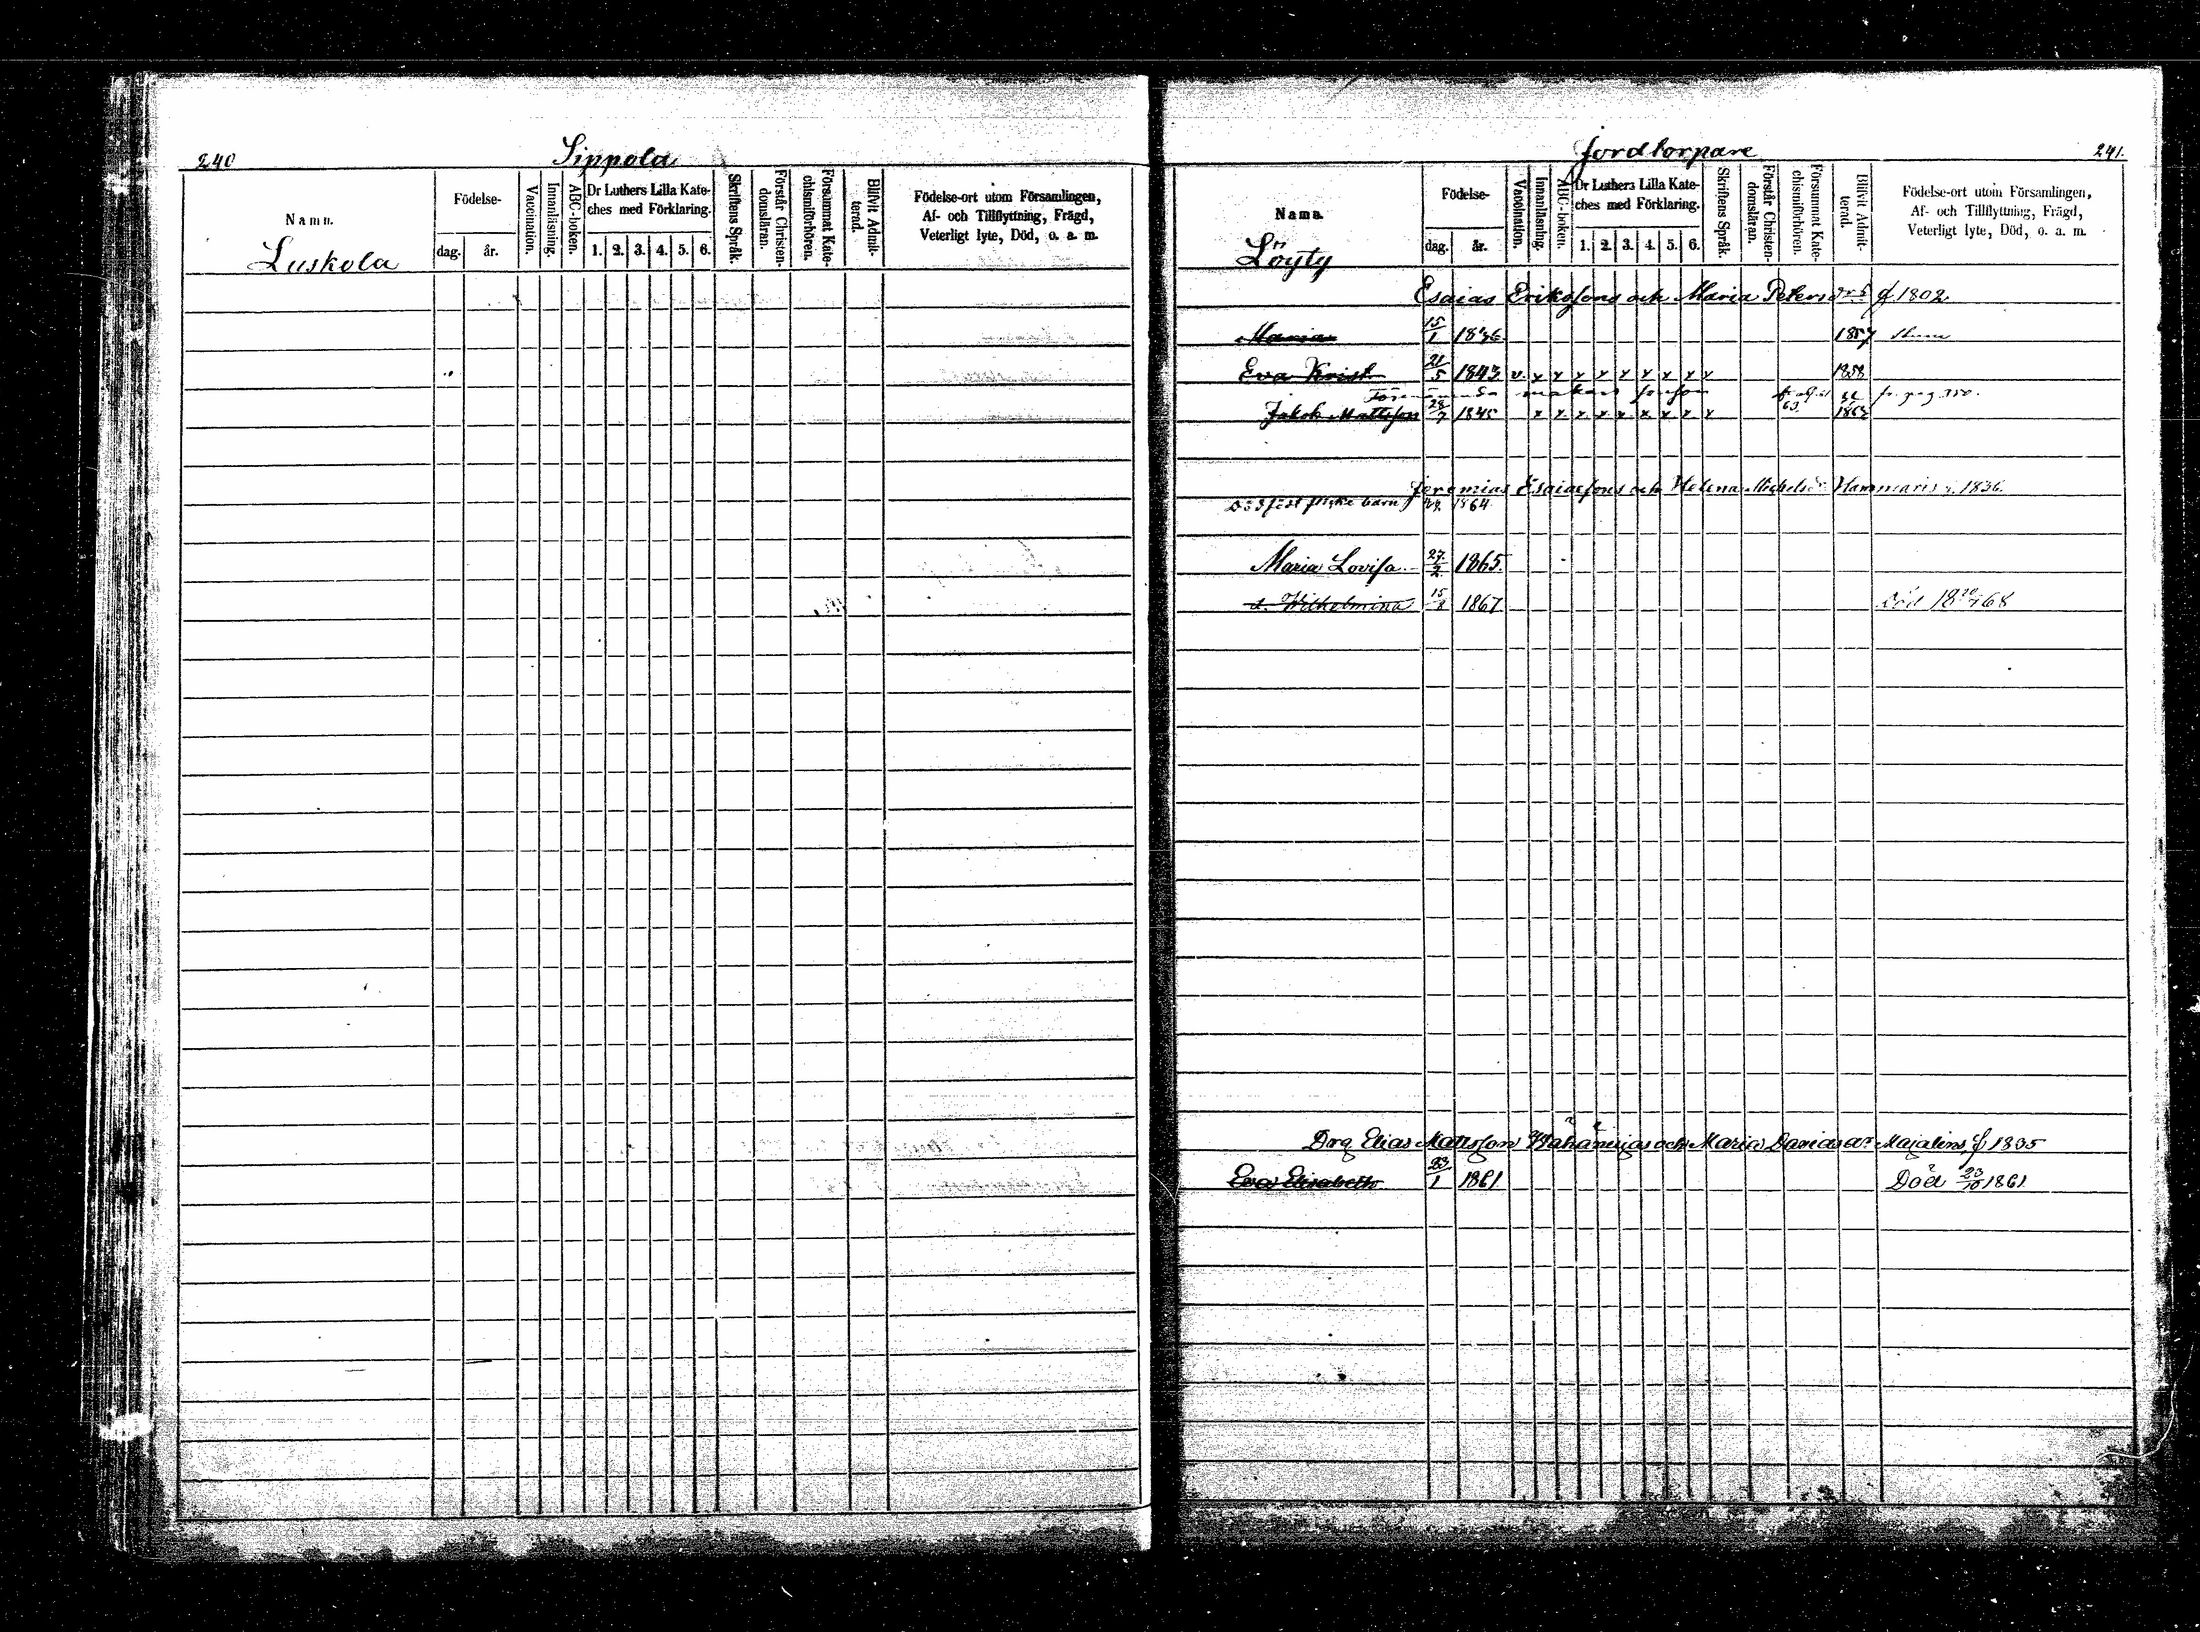 240 Sippola
Namn.
Födelse-
dag. år.
Vaccination.
Innanläsning.
ABC-boken.
Dr Luthers Lilla Kate-
ches med Förklaring.
1. 2. 3. 4. 5. 6.
Skriftens Språk.
Förstår Christen-
domsläran.
Försummat Kate-
chismiförhören.
Blifvit Admit-
terad.
Födelse-ort utom Församlingen,
Af- och Tillflyttning, Frägd,
Veterligt lyte, Död, o. a. m.
Luskola
Jordtorpare 241.
Namn.
Födelse-
dag. år.
Vaccination.
Innanläsning.
ABC-boken.
Dr Luthers Lilla Kate-
ches med Förklaring.
1. 2. 3. 4. 5. 6.
Skriftens Språk.
Förstår Christen-
domsläran.
Försummat Kate-
chismiförhören.
Blifvit Admit-
terad.
Födelse-ort utom Församlingen,
Af- och Tillflyttning, Frägd,
Veterligt lyte, Död, o. a. m.
Löyty
Esaias Eriksons och Maria Petersdr f. 1802
Maria 15/1 1836 1857
Eva Krist. 21/5 1843 v. x x x x x x x x x 1858
makars sonson
Jakob Mattsson 28/7 1845 x x x x x x x x x 63 1863
Jeremias Esaiaesons och Helena Michelsdr Hammaris 1836.
1864
Maria Lovisa 27/2 1865.
d. Wilhelmina 15/8 1867 död 1868
Drg Elias Mattsson och Maria Majalins f 1835
Eva Elisabeth 23/1 1861 Död 23/10 1861